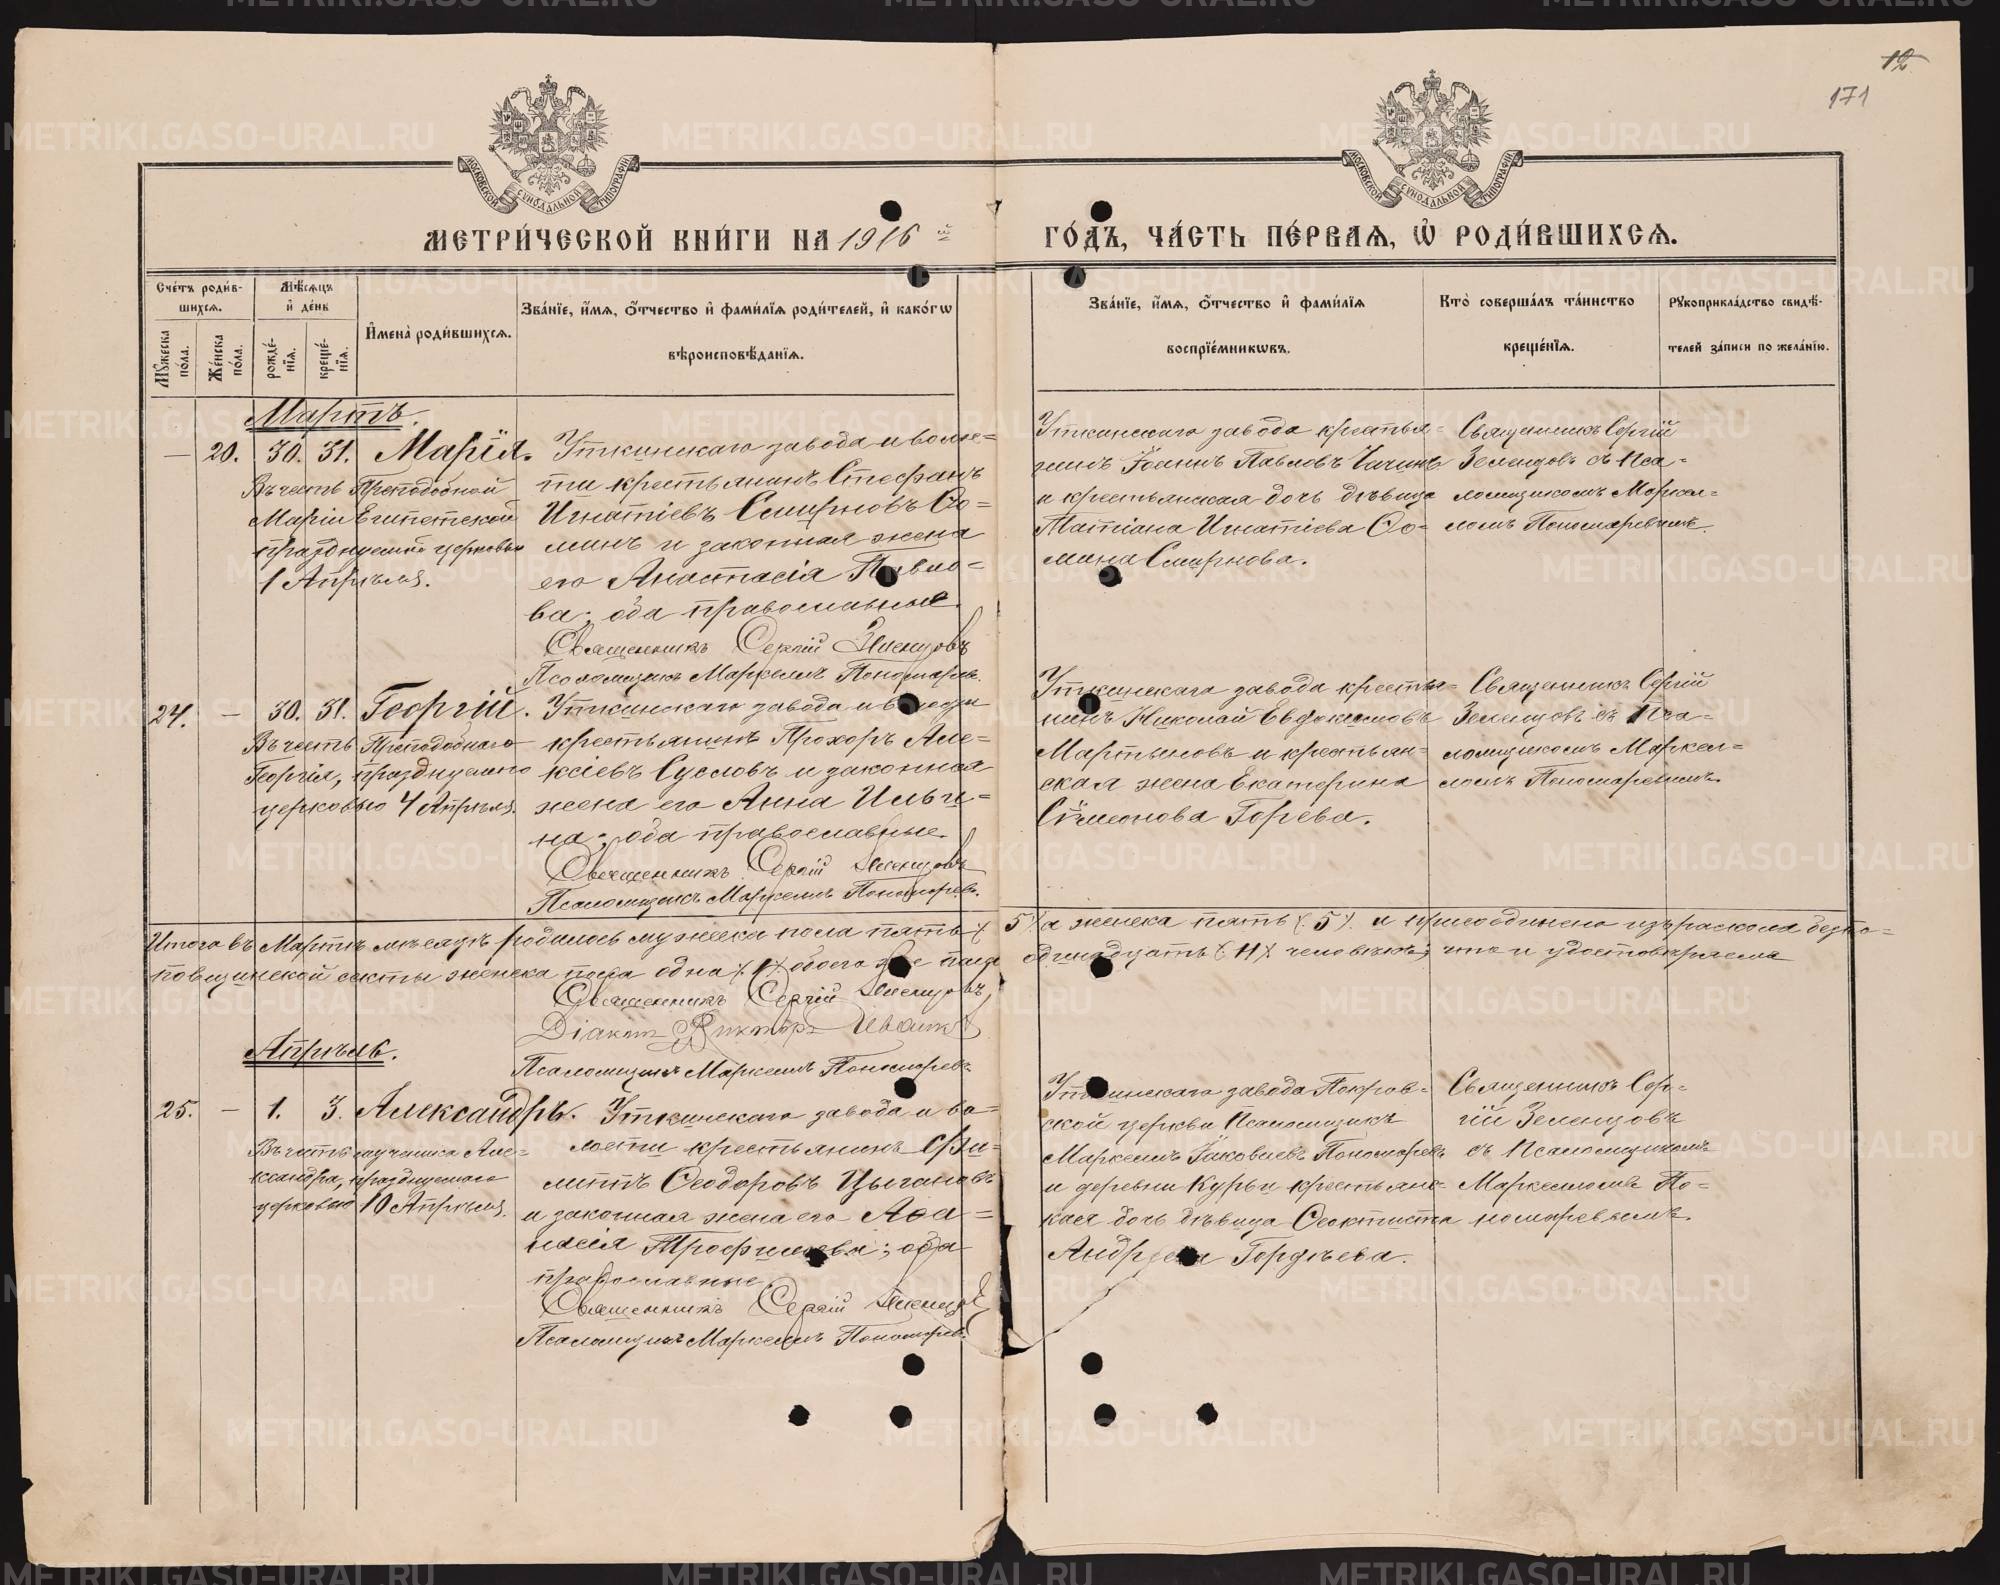 12
171
МОСКОВСКОЙ СѴНОДАЛЬНОЙ ТИПОГРАФІИ
МОСКОВСКОЙ СѴНОДАЛЬНОЙ ТИПОГРАФІИ
МЕТРИ́ЧЕСКОЙ КНИ́ГИ НА 1916 й
ГО́ДЪ, ЧА́СТЬ ПЕ́РВАѦ, Ѡ РОДИ́ВШИХСѦ.
Сче́тъ роди́в-
шихсѧ.
Мꙋ́жеска по́ла.
Же́нска по́ла.
Мѣ́сѧцъ
и҆ де́нь
рожде́-нїѧ.
креще́-нїѧ.
И҆мена̀ роди́вшихсѧ.
Зва́нїе, и҆́мѧ, ѻ҆́тчество и҆ фами́лїѧ роди́телей, и҆ како́гѡ
вѣроисповѣ́данїѧ.
Зва́нїе, и҆́мѧ, ѻ҆́тчество и҆ фами́лїѧ
воспрїе́мникѡвъ.
Кто̀ соверша́лъ та́инство
креще́нїѧ.
Рꙋкоприкла́дство свидѣ́-
телей за́писи по жела́нїю.
Мартъ.
— 20. 30. 31. Марія.
Въ честь Преподобной
Маріи Египетской
празднуемой церковью
1 Апрѣля.
Уткинскаго завода и волос-
ти крестьянинъ Стефанъ
Игнатіевъ Смирновъ Ѳо-
минъ и законная жена
его Анастасія Павло-
ва; оба православные.
Священникъ Сергій Зеленцовъ
Псаломщикъ Маркеллъ Пономаревъ.
Уткинскаго завода крестья-
нинъ Іоаннъ Павловъ Чачинъ
и крестьянская дочь дѣвица
Татіана Игнатіева Ѳо-
мина Смирнова.
Священникъ Сергій
Зеленцовъ съ Пса-
ломщикомъ Маркел-
ломъ Пономаревымъ.
24. — 30. 31. Георгій.
Въ честь Преподобнаго
Георгія, празднуемаго
церковью 4 Апрѣля.
Уткинскаго завода и волости
крестьянинъ Прохоръ Але-
ксіевъ Сусловъ и законная
жена его Анна Ильи-
на; оба православные.
Священникъ Сергій Зеленцовъ
Псаломщикъ Маркеллъ Пономаревъ.
Уткинскаго завода крестья-
нинъ Николай Евдокимовъ
Мартьяновъ и крестьян-
ская жена Екатерина
Сѵмеонова Горева.
Священникъ Сергій
Зеленцовъ съ Пса-
ломщикомъ Маркел-
ломъ Пономаревымъ.
Итого въ Мартѣ мѣсяцѣ родилось мужеска пола пять (5) а женска пять (5). и присоединено изъ раскола безпо-
повщинской секты женска пола одна (1) обоего же пола одиннадцать (11) человѣкъ; что и удостовѣряемъ
Священникъ Сергій Зеленцовъ,
Діаконъ Викторъ Ивановъ
Псаломщикъ Маркеллъ Пономаревъ
Апрѣль.
25. — 1. 3. Александръ.
Въ честь мученика Але-
ксандра, празднуемаго
церковью 10 Апрѣля.
Уткинскаго завода и во-
лости крестьянинъ Фи-
липпъ Ѳеодоровъ Цыгановъ
и законная жена его Аѳа-
насія Трофимова; оба
православные.
Священникъ Сергій Зеленцовъ
Псаломщикъ Маркеллъ Пономаревъ.
Уткинскаго завода Покров-
ской церкви Псаломщикъ
Маркеллъ Іаковлевъ Пономаревъ
и деревни Курьи крестьянс-
кая дочь дѣвица Ѳеоктиста
Андреева Гордѣева.
Священникъ Сер-
гій Зеленцовъ
съ Псаломщикомъ
Маркелломъ По-
номаревымъ.
METRIKI.GASO-URAL.RU